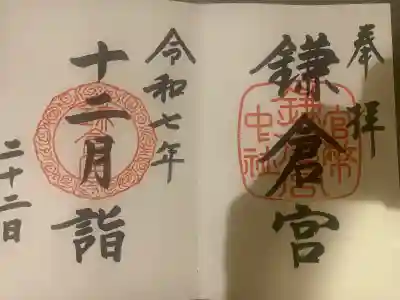 奉拝
鎌倉宮
官幣中社
鎌倉宮
令和七年
十二月詣
二十二日